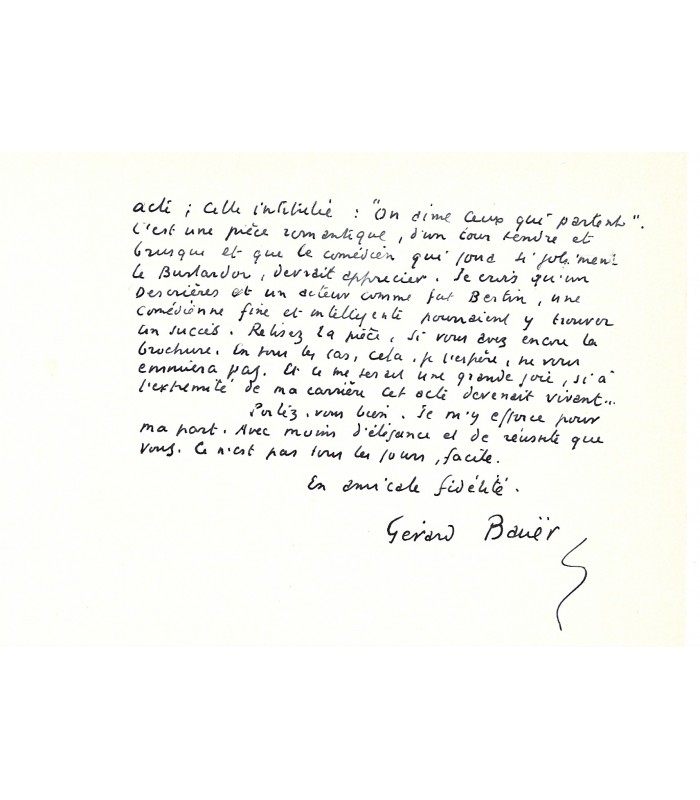 acte ; celle intitulée : "On aime ceux qui partent".
C'est une pièce romantique, d'un tour tendre et
brusque et que le comédien qui joua si joliment
le                , devrait apprécier. Je crois qu'un
Descrières et un acteur comme fut Bertin, une
comédienne fine et intelligente pourraient y trouver
un succès. Relisez la pièce, si vous avez encore la
brochure. En tous les cas, cela, je l'espère, ne vous
ennuiera pas. Et ce me serait une grande joie, si à
l'extrémité de ma carrière cet acte devenait vivant...
Portez-vous bien. Je m'y efforce pour
ma part. Avec moins d'élégance et de réussite que
vous. Ce n'est pas tous les jours, facile.
En amicale fidélité.
Gérard Bauër